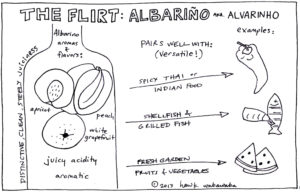 THE FLIRT: ALBARIÑO AKA ALVARINHO
DISTINCTIVE, CLEAN, STEELY JUICINESS
Albarino
aromas &
flavors:
apricot
peach
white
grapefruit
juicy acidity
aromatic
PAIRS WELL WITH:
(Versatile!)
examples:
SPICY THAI or
INDIAN FOOD
SHELLFISH &
GRILLED FISH
FRESH GARDEN
FRUITS & VEGETABLES
© 2013 hawk wakawaka